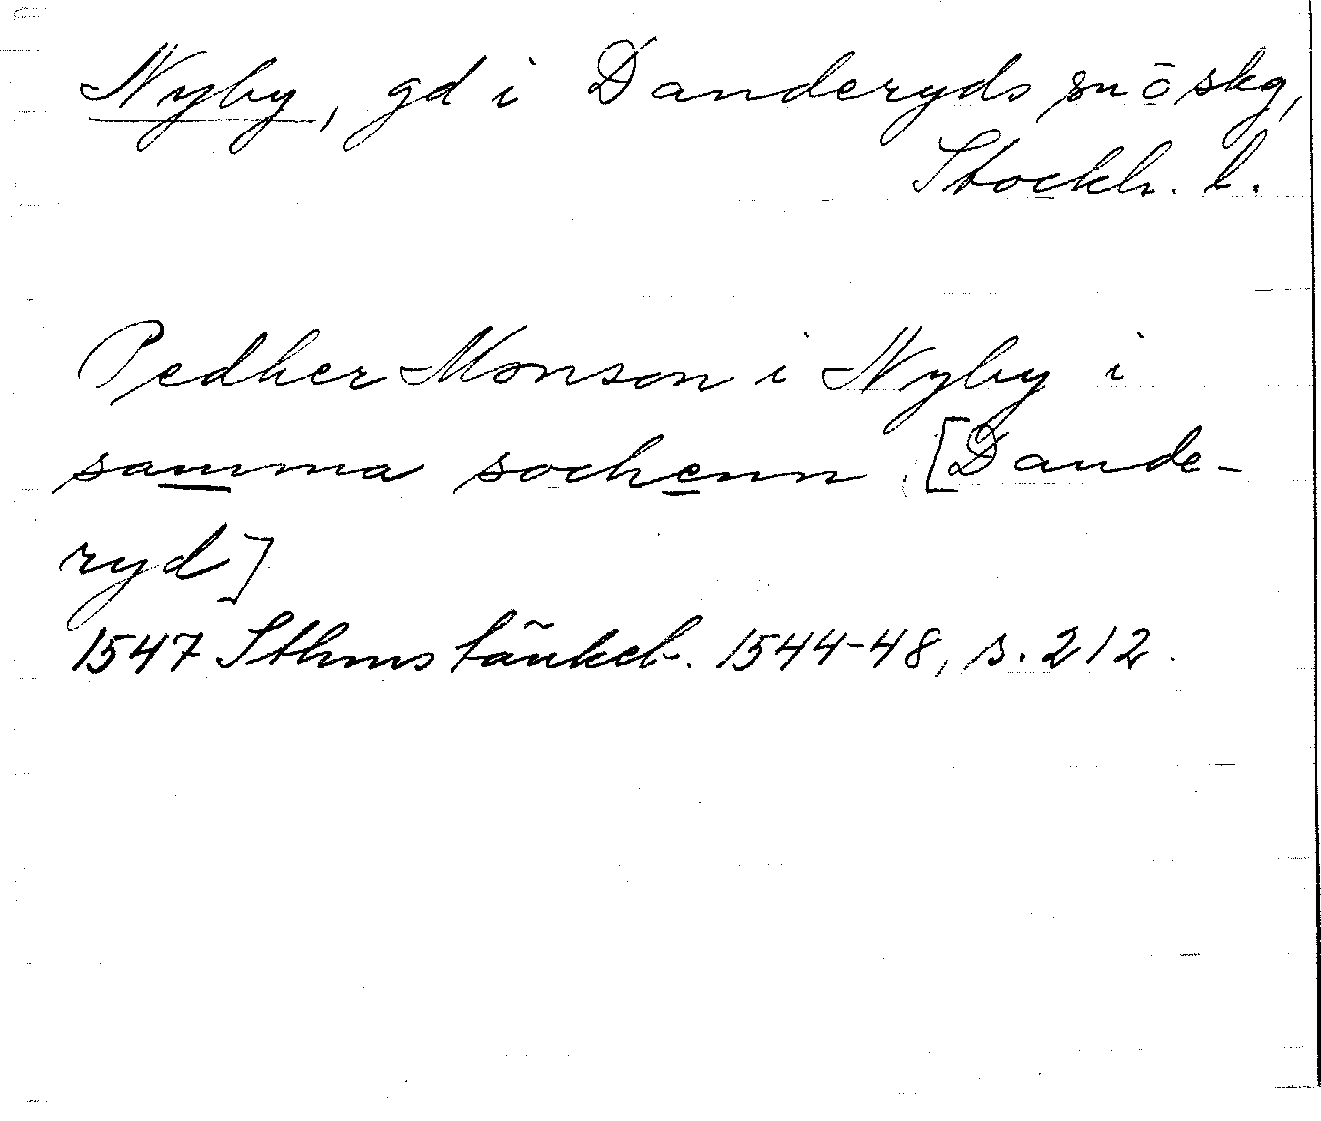 Nyby, gd i Danderyds sn o skg,
Stockh. l.
Pedher Monson i Nyby i
samma sochenn [Dande-
ryd]
1547 Sthms tänkeb. 1544-48, s. 212.